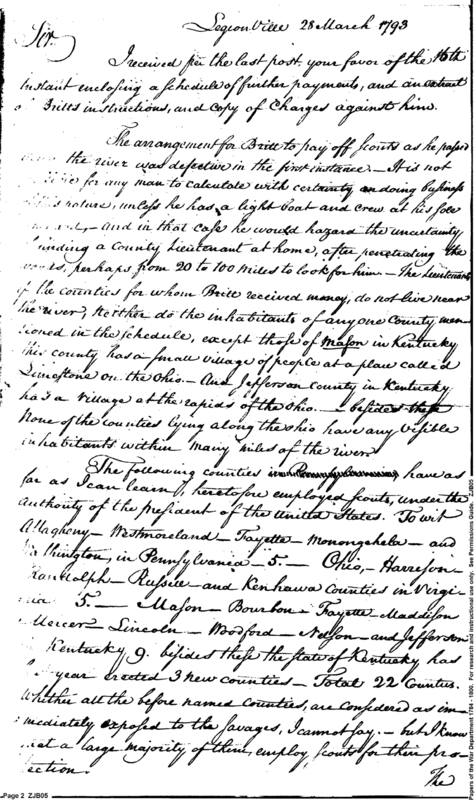 Legionville 28 March 1793
Sir.
I received per the last post your favor of the 16th
Instant enclosing a schedule of further payments, and an extract
Britts instructions, and copy of Charges against him.
The arrangement for Britt to pay off Scouts as he passed
the river was defective in the first instance. - It is not
for any man to calculate with certainty on doing business
nature, unless he has a light boat and crew at his sole
- and in that case he would hazard the uncertainty
finding a County Lieutenant at home, after penetrating the
woods, perhaps from 20 to 100 miles to look for him - The Lieutenants
of the counties for whom Britt received money, do not live near
the river, Neither do the inhabitants of any one County men-
tioned in the schedule, except those of Mason in Kentucky
this county has a small village of people at a place called
Limestone on the Ohio - And Jefferson County in Kentucky
has a village at the rapids of the Ohio. - besides these
None of the counties lying along the Ohio have any visible
inhabitants within many miles of the river
The following counties in Pennsylvania have as
far as I can learn, heretofore employed scouts, under the
Authority of the president of the United States. To wit
Allagheny - Westmoreland - Fayette - Monongahela - and
Washington, in Pennsylvania - 5. - Ohio, - Harreson -
Randolph - Russele - and Kenhawa Counties in Virgi-
nia 5. - Mason - Bourbon - Fayette - Maddison
Mercer - Lincoln - Wodford - Nelson - and Jefferson
Kentucky 9. besides these the state of Kentucky has
year erected 3 new counties - Total 22 Counties.
Whether all the before named Counties, are considered as im-
mediately exposed to the savages, I cannot say. - but I know
that a large majority of them, employ Scouts for their pro-
tection.
The
Page 2 ZJB05
Papers of the War Department 1784 - 1800. For research and instructional use only. See Permissions Guide. ZJB05